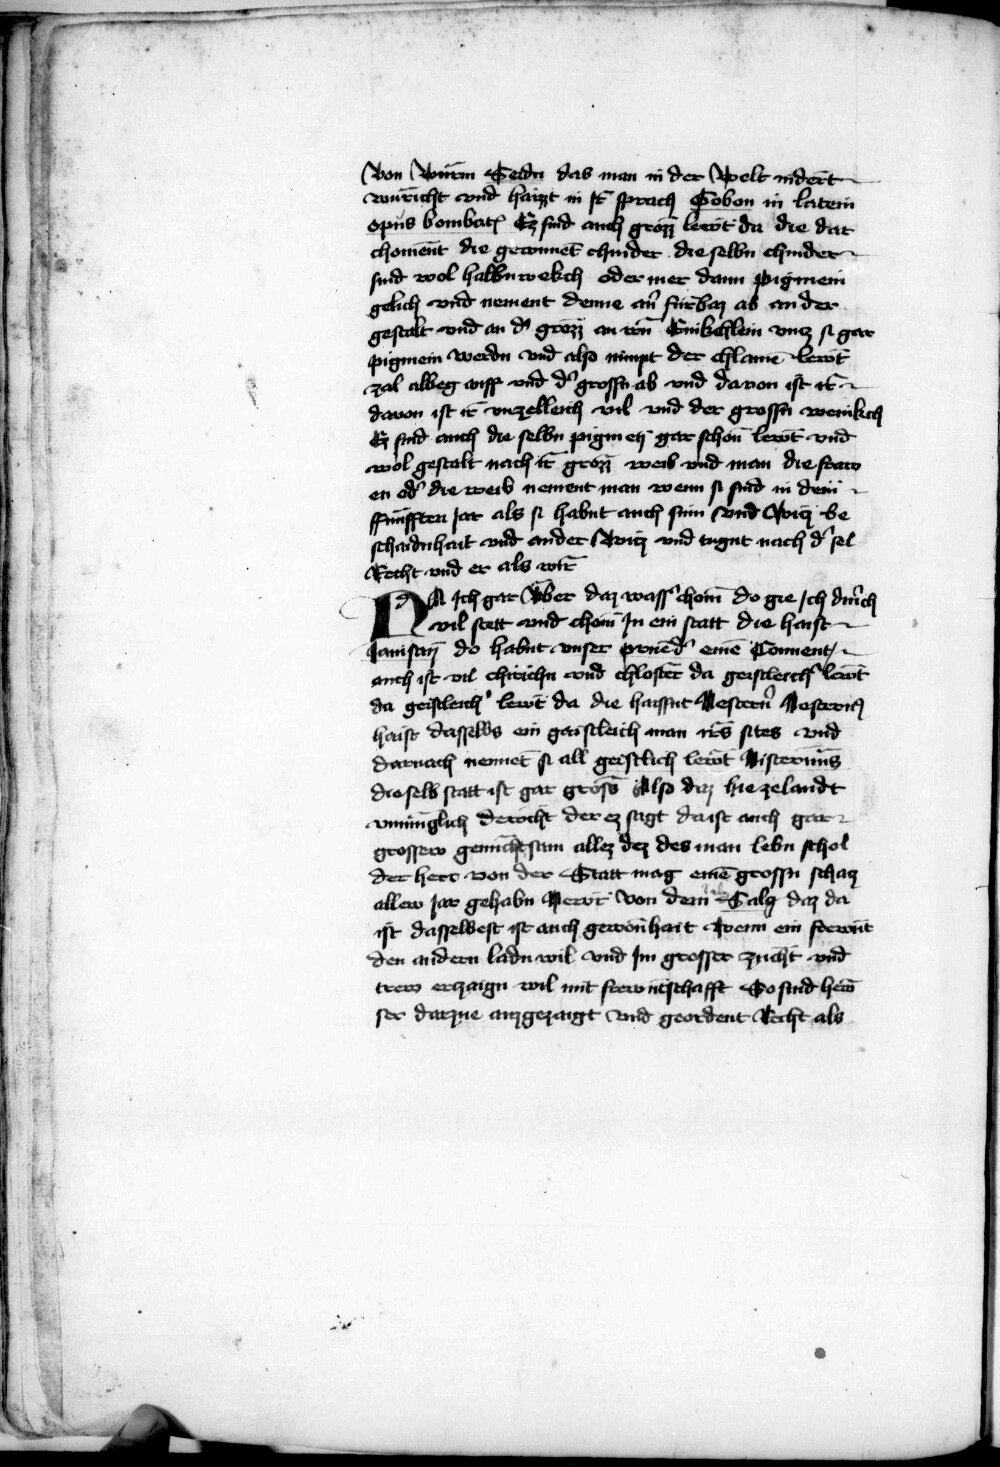 Von Würm Seidn das man in der Welt nidert
würicht vnd haizt in ir̄ sprach Sobon in latein
opus bombat͛ Ez sind auch grozz lewt da die dar
choment die gewinnet chinder die selbn chinder
sind wol halbnwekch oder mer dann pigmein
gelich vnd nement denne an̄ fürbaz ab an der
gestalt vnd an d͛ grozz an irn̄ Enikchlein vncz si gar
pigmein werdn vnd also nimpt der chlaine lewt
zal albeg auff vnd d͛ grossn ab vnd davon ist ir̄
davon ist ir̄ vnzelleich vil vnd der grossn wenikch
Ez sind auch die selbn pigmeӱ gar schön lewt vnd
wol gestalt nach ir̄ grozz weib vnd man die fraw
en od͛ die weib nement man wenn si sind in dem
ffünfften jar als si habnt auch sinn vnd Witz be
schaidnhait vnd ander Witz vnd tugnt nach d͛ sel
Recht vnd er als wir̄
DA Ich gar Über daz wass͛ chom̄ do gie ich durich
vil stett vnd chom̄ In ein statt die haist
Jamsaӱ do habnt vnser prued͛ eine Conuent
auch ist vil chirichn vnd chloster da geistleich͛ lewt
da geistleich͛ lewt da die haissnt Nestern͛ Nestern͛
haist dasselbs ein gaistleich man irs̄ sites vnd
darnach nennet si all geistlich lewt Nisterinus̄
die selb statt ist gar gross̄ Also daz hie ze landt
vmuglich dewcht der ez sagt da ist auch gar
grossew genuchtsam allez dez des man lebn schol
der herr von der Statt mag eine grossn schatz
allew jar gehabn Newr Von dem Salz daz da
ist dasselbest ist auch gewonhait Wenn ein frewnt
den andern ladn wil vnd Im grosser zucht vnd
trew erzaign wil mit frewntschafft So sind hew
ser darzue auzgezaigt vnd geordent Recht als